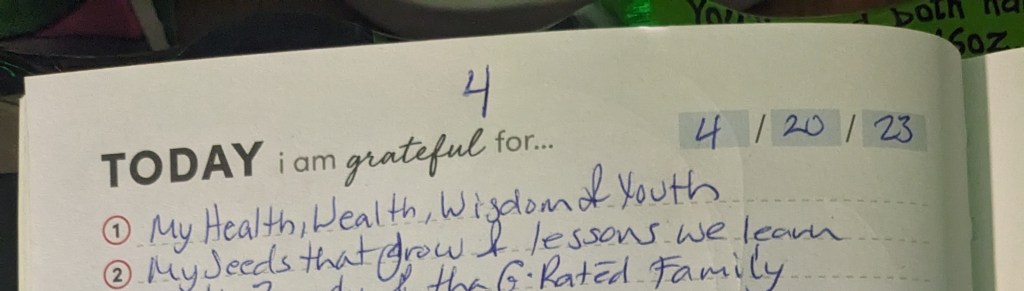 You both
6oz
4
TODAY i am grateful for...
4 / 20 / 23
1 My Health, Wealth, Wisdom & Youth
2 My Seeds that Grow & lessons we learn
the G-Rated Family